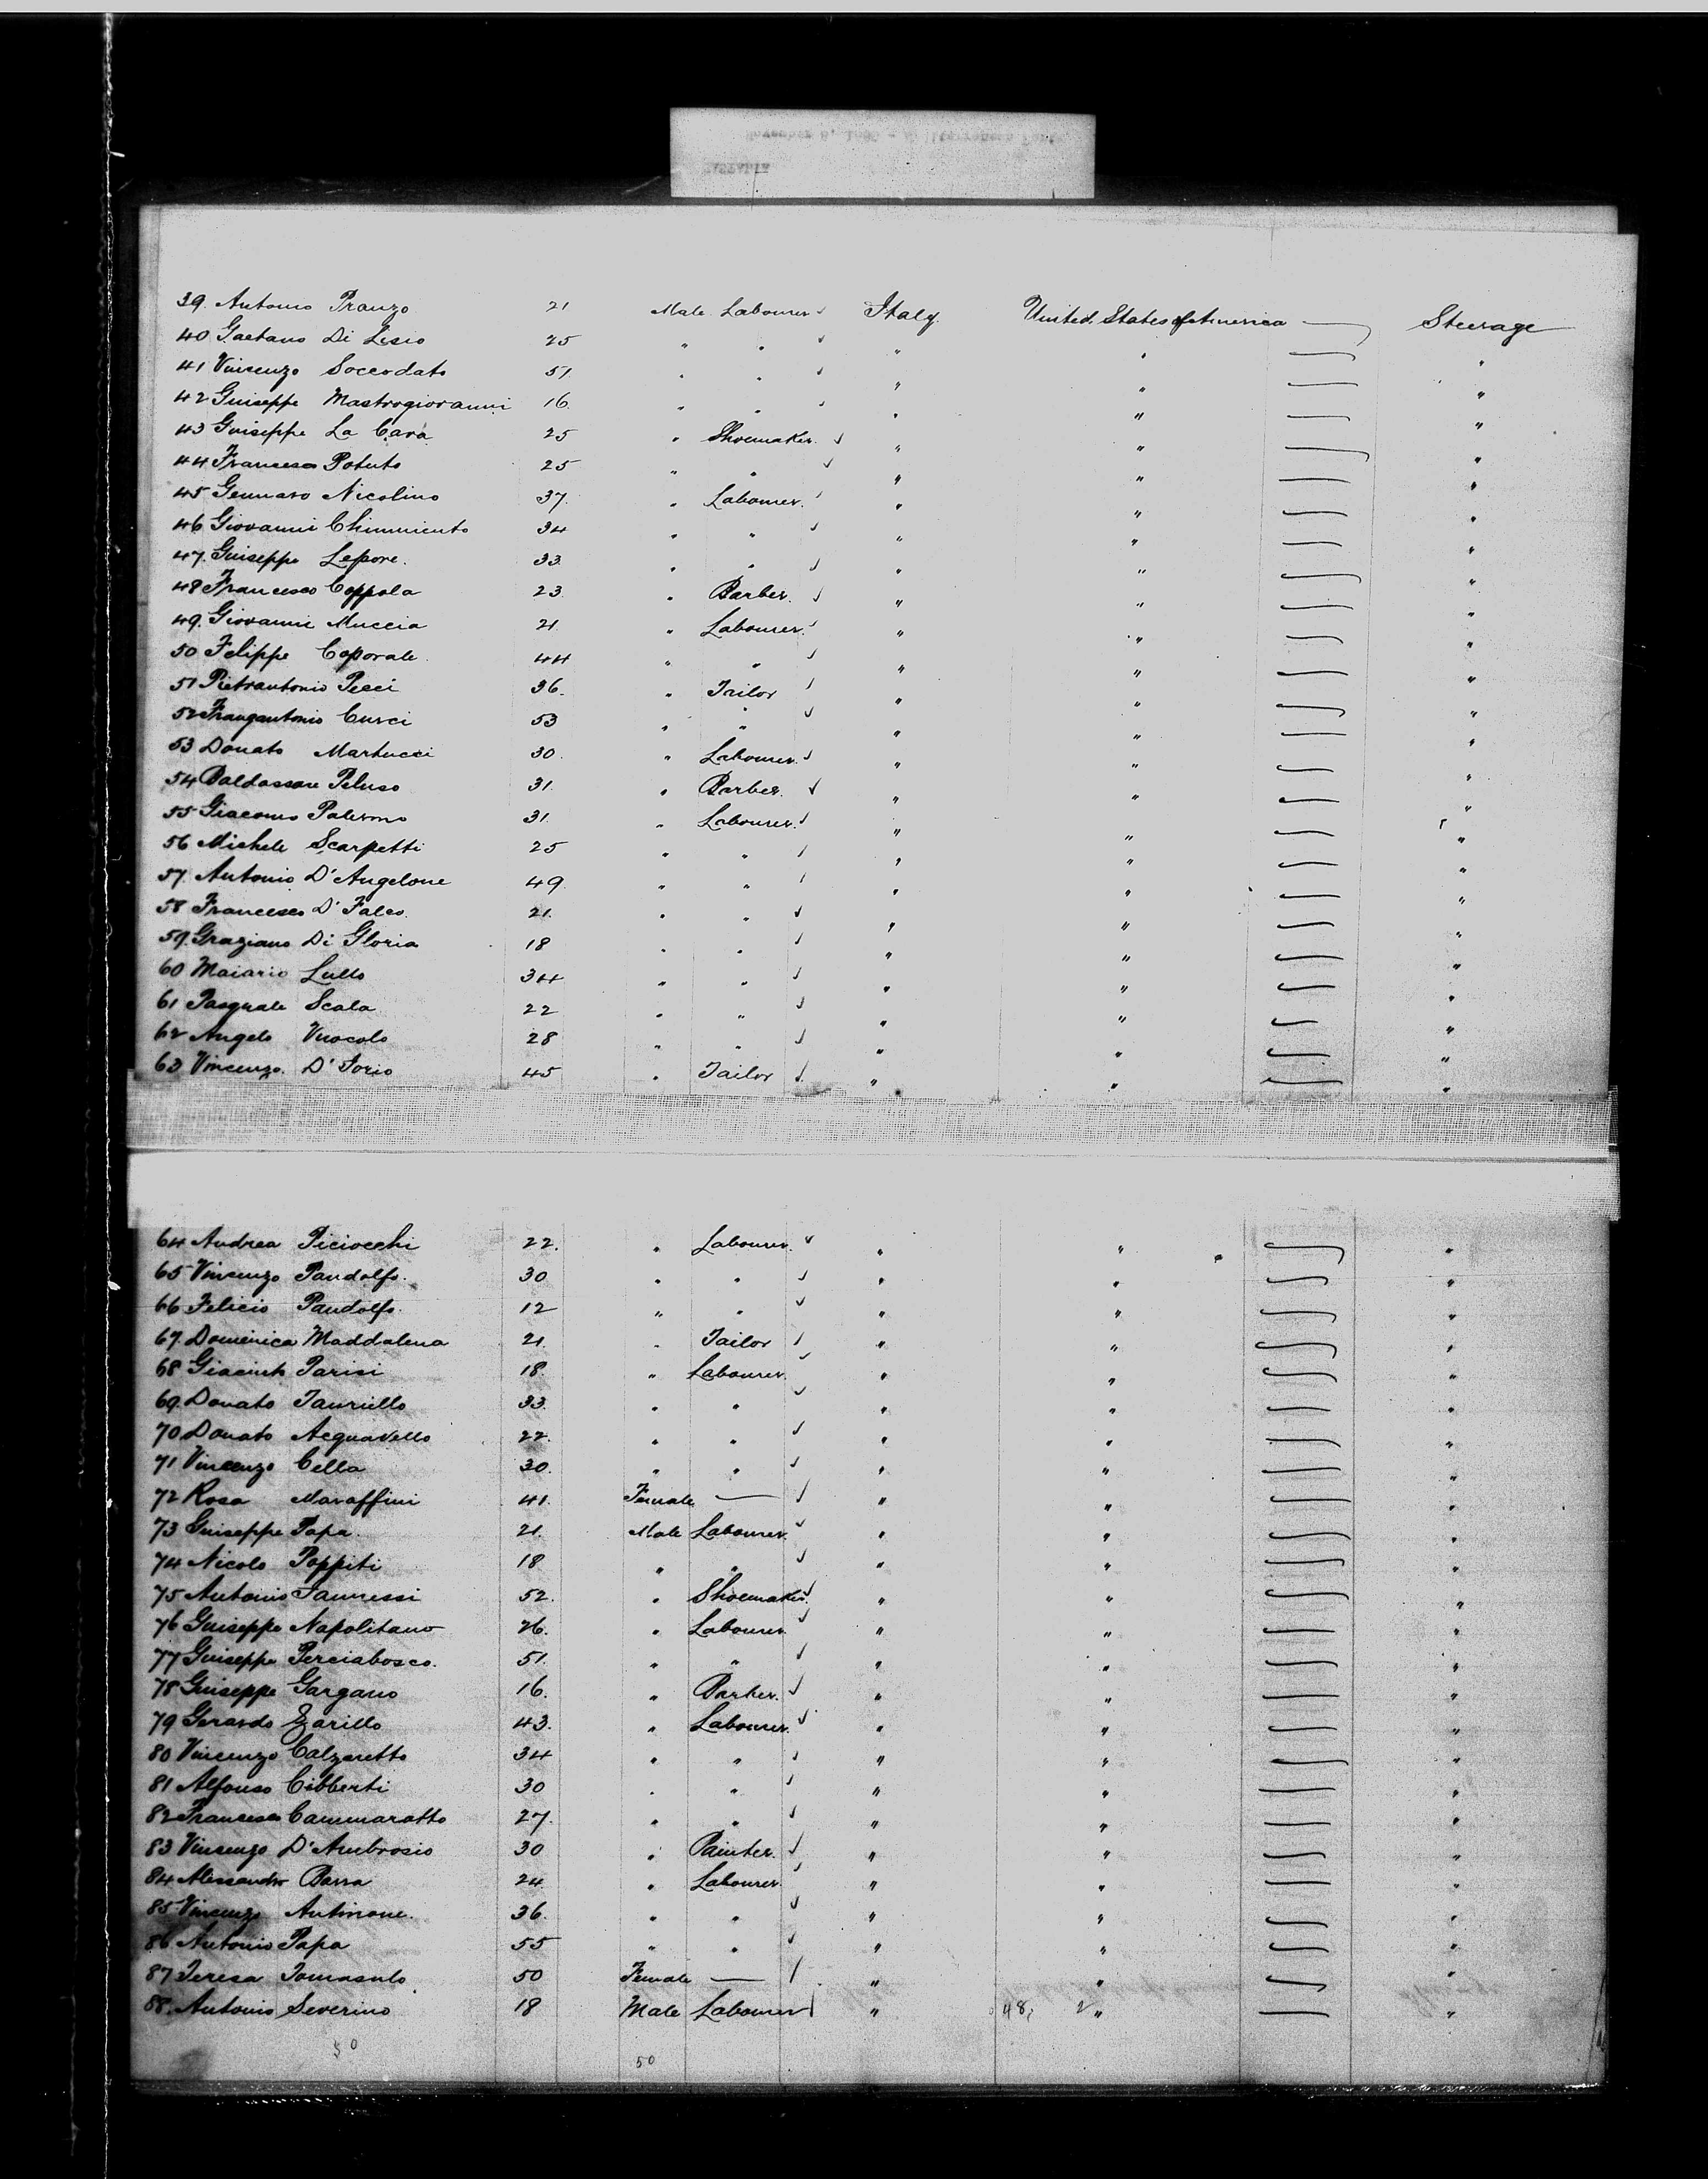 39. Antonio Pranzo 21 Male Labourer Italy United States of America Steerage
40 Gaetano Di Lesio 25 " " " " "
41 Vincenzo Soccodato 51 " " " " "
42 Guiseppe Mastrogiovanni 16 " " " " "
43 Guiseppe La Cava 25 " Shoemaker. " " "
44 Francesco Potuto 25 " " " " "
45 Gennaro Nicolino 37. " Labourer. " " "
46 Giovanni Chimmiento 34 " " " " "
47. Guiseppe Lepore. 33. " " " " "
48 Francesco Coppola 23 " Barber. " " "
49. Giovanni Muccia 21. " Labourer. " " "
50 Felippe Caporale. 44 " " " " "
51 Pietrantonio Pecci 36. " Tailor " " "
52 Frangantonio Curci 53 " " " " "
53 Donato Martucci 30. " Labourer. " " "
54 Baldassare Peluso 31. " Barber. " " "
55 Giacomo Palermo 31. " Labourer. " " "
56 Michele Scarpetti 25 " " " " "
57. Antonio D'Angelone 49 " " " " "
58 Francesco D'Falco. 21. " " " " "
59. Graziano Di Gloria 18 " " " " "
60 Maiario Lullo 34 " " " " "
61 Pasquale Scala 22 " " " " "
62 Angelo Vuocolo 28 " " " " "
63 Vincenzo. D'Iorio 45 " Tailor " " "
64 Andrea Piciocchi 22. " Labourer. " " "
65 Vincenzo Pandolfo. 30 " " " " "
66 Felicio Pandolfo. 12 " " " " "
67. Domenica Maddalena 21. " Tailor " " "
68 Giacinto Parisi 18. " Labourer. " " "
69. Donato Tauriello 33. " " " " "
70 Donato Acquavello 22. " " " " "
71 Vincenzo Cella 30. " " " " "
72 Rosa Maraffini 41. Female — " " "
73 Guiseppe Papa. 21. Male Labourer. " " "
74 Nicolo Poppiti 18 " " " " "
75 Antonio Iannessi 52. " Shoemaker. " " "
76 Guiseppe Napolitano 26. " Labourer " " "
77 Guiseppe Perciabosco. 51. " " " " "
78 Guiseppe Gargano 16. " Barber. " " "
79 Gerardo Zarillo 43. " Labourer. " " "
80 Vincenzo Calzaretto 34 " " " " "
81 Alfonso Cibberti 30 " " " " "
82 Francesco Cammaratto 27. " " " " "
83 Vincenzo D'Ambrosio 30 " Painter. " " "
84 Alessandro Barra 24 " Labourer. " " "
85 Vincenzo Antinone. 36. " " " " "
86 Antonio Papa 55 " " " " "
87 Teresa Tomasulo 50 Female — " " "
88. Antonio Severino 18 Male Labourer " 48, 2 " "
50 50